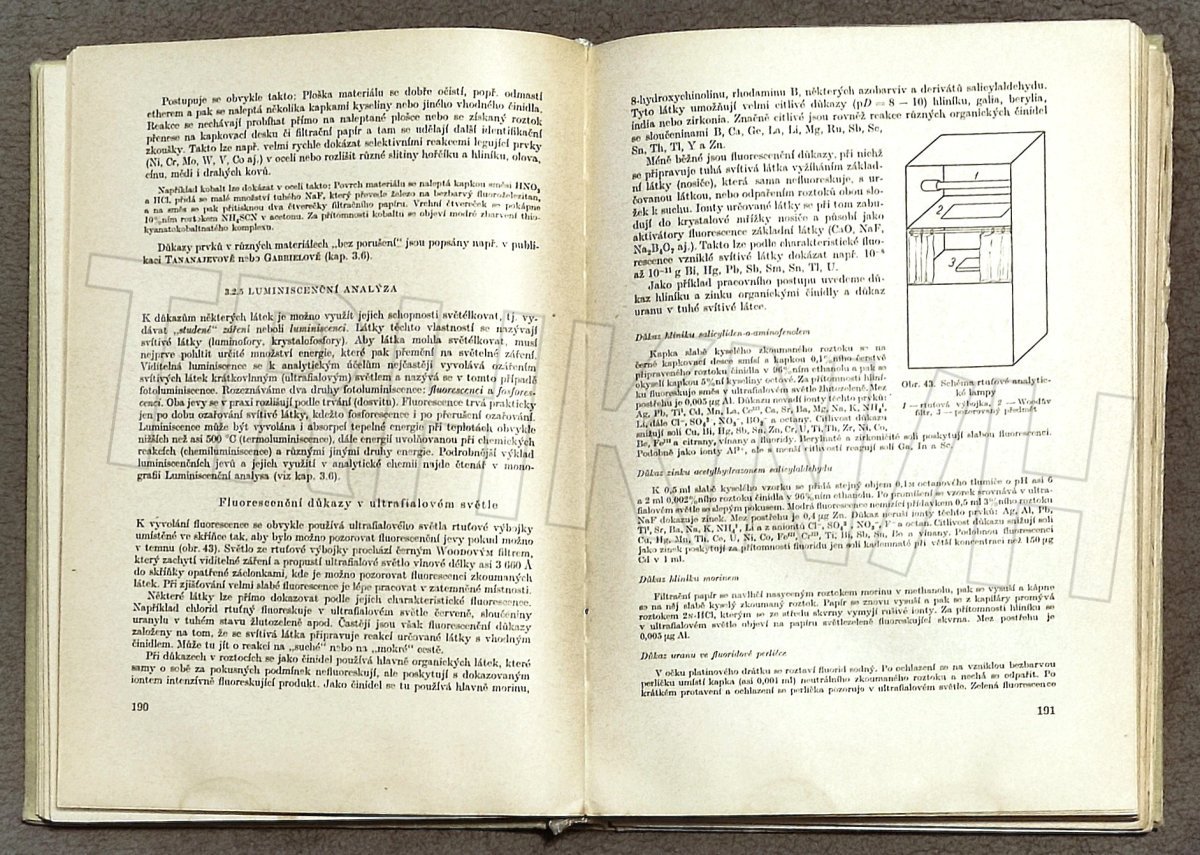 Postupuje se obvykle takto: Ploška materiálu se dobře očistí, popř. odmastí
etherem a pak se naleptá několika kapkami kyseliny nebo jiného vhodného činidla.
Reakce se nechávají probíhat přímo na naleptané plošce nebo se získaný roztok
přenese na kapkovací desku či filtrační papír a tam se udělají další identifikační
zkoušky. Takto lze např. velmi rychle dokázat selektivními reakcemi legující prvky
(Ni, Cr, Mo, W, V, Co aj.) v oceli nebo rozlišit různé slitiny hořčíku a hliníku, olova,
cínu, mědi i drahých kovů.
Například kobalt lze dokázat v oceli takto: Povrch materiálu se naleptá kapkou směsi HNO₃
a HCl, přidá se malé množství tuhého NaF, který převede železo na bezbarvý fluoroželezitan,
a na směs se pak přitisknou dva čtverečky filtračního papíru. Vrchní čtvereček se pokápne
10%ním roztokem NH₄SCN v acetonu. Za přítomnosti kobaltu se objeví modré zbarvení thio-
kyanatokobaltnatého komplexu.
Důkazy prvků v různých materiálech „bez porušení“ jsou popsány např. v publi-
kaci TANANAJEVOVĚ nebo GABRIELOVĚ (kap. 3.6).
3.2.5 LUMINISCENČNÍ ANALÝZA
K důkazům některých látek je možno využít jejich schopnosti světélkovat, tj. vy-
dávat „studené“ záření neboli luminiscenci. Látky těchto vlastností se nazývají
svítivé látky (luminofory, krystalofosfory). Aby látka mohla světélkovat, musí
nejprve pohltit určité množství energie, které pak přemění na světelné záření.
Viditelná luminiscence se k analytickým účelům nejčastěji vyvolává ozářením
svítivých látek krátkovlnným (ultrafialovým) světlem a nazývá se v tomto případě
fotoluminiscence. Rozeznáváme dva druhy fotoluminiscence: fluorescenci a fosfores-
cenci. Oba jevy se v praxi rozlišují podle trvání (dosvitu). Fluorescence trvá prakticky
jen po dobu ozařování svítivé látky, kdežto fosforescence i po přerušení ozařování.
Luminiscence může být vyvolána i absorpcí tepelné energie při teplotách obvykle
nižších než asi 500 °C (termoluminiscence), dále energií uvolňovanou při chemických
reakcích (chemiluminiscence) a různými jinými druhy energie. Podrobnější výklad
luminiscenčních jevů a jejich využití v analytické chemii najde čtenář v mono-
grafii Luminiscenční analysa (viz kap. 3.6).
Fluorescenční důkazy v ultrafialovém světle
K vyvolání fluorescence se obvykle používá ultrafialového světla rtuťové výbojky
umístěné ve skříňce tak, aby bylo možno pozorovat fluorescenční jevy pokud možno
v temnu (obr. 43). Světlo ze rtuťové výbojky prochází černým WOODOVÝM filtrem,
který zachytí viditelné záření a propustí ultrafialové světlo vlnové délky asi 3 660 Å
do skříňky opatřené záclonkami, kde je možno pozorovat fluorescenci zkoumaných
látek. Při zjišťování velmi slabé fluorescence je lépe pracovat v zatemněné místnosti.
Některé látky lze přímo dokazovat podle jejich charakteristické fluorescence.
Například chlorid rtuťný fluoreskuje v ultrafialovém světle červeně, sloučeniny
uranylu v tuhém stavu žlutozeleně apod. Častěji jsou však fluorescenční důkazy
založeny na tom, že se svítivá látka připravuje reakcí určované látky s vhodným
činidlem. Může tu jít o reakci na „suché“ nebo na „mokré“ cestě.
Při důkazech v roztocích se jako činidel používá hlavně organických látek, které
samy o sobě za pokusných podmínek nefluoreskují, ale poskytují s dokazovaným
iontem intenzívně fluoreskující produkt. Jako činidel se tu používá hlavně morinu,
190
8-hydroxychinolinu, rhodaminu B, některých azobarviv a derivátů salicylaldehydu.
Tyto látky umožňují velmi citlivé důkazy (pD = 8 — 10) hliníku, galia, berylia,
india nebo zirkonia. Značně citlivé jsou rovněž reakce různých organických činidel
se sloučeninami B, Ca, Ge, La, Li, Mg, Ru, Sb, Sc,
Sn, Th, Tl, Y a Zn.
Méně běžné jsou fluorescenční důkazy, při nichž
se připravuje tuhá svítivá látka vyžíháním základ-
ní látky (nosiče), která sama nefluoreskuje, s ur-
čovanou látkou, nebo odpařením roztoků obou slo-
žek k suchu. Ionty určované látky se při tom zabu-
dují do krystalové mřížky nosiče a působí jako
aktivátory fluorescence základní látky (CaO, NaF,
Na₂B₄O₇ aj.). Takto lze podle charakteristické fluo-
rescence vzniklé svítivé látky dokázat např. 10⁻⁸
až 10⁻¹¹ g Bi, Hg, Pb, Sb, Sm, Sn, Tl, U.
Jako příklad pracovního postupu uvedeme dů-
kaz hliníku a zinku organickými činidly a důkaz
uranu v tuhé svítivé látce.
1
2
3
Obr. 43. Schéma rtuťové analytic-
ké lampy
1 — rtuťová výbojka, 2 — Woodův
filtr, 3 — pozorovaný předmět
Důkaz hliníku salicyliden-o-aminofenolem
Kapka slabě kyselého zkoumaného roztoku se na
černé kapkovací desce smísí s kapkou 0,1%ního čerstvě
připraveného roztoku činidla v 96%ním ethanolu a pak se
okyselí kapkou 5%ní kyseliny octové. Za přítomnosti hliní-
ku fluoreskuje směs v ultrafialovém světle žlutozeleně. Mez
postřehu je 0,005 µg Al. Důkazu nevadí ionty těchto prvků:
Ag, Pb, Tlᴵ, Cd, Mn, La, Ceᴵᴵᴵ, Ca, Sr, Ba, Mg, Na, K, NH₄⁺,
Li, dále Cl⁻, SO₄²⁻, NO₃⁻, BO₂⁻ a octany. Citlivost důkazu
snižují soli Cu, Bi, Hg, Sb, Sn, Zn, Cr, U, Ti, Th, Zr, Ni, Co,
Be, Feᴵᴵᴵ a citrany, vínany a fluoridy. Beryllnaté a zirkoničité soli poskytují slabou fluorescenci.
Podobně jako ionty Al³⁺, ale s menší citlivostí reagují soli Ga, In a Sc.
Důkaz zinku acetylhydrazonem salicylaldehydu
K 0,5 ml slabě kyselého vzorku se přidá stejný objem 0,1M octanového tlumiče o pH asi 6
a 2 ml 0,002%ního roztoku činidla v 96%ním ethanolu. Po promísení se vzorek srovnává v ultra-
fialovém světle se slepým pokusem. Modrá fluorescence nemizící přídavkem 0,5 ml 3%ního roztoku
NaF dokazuje zinek. Mez postřehu je 0,4 µg Zn. Důkaz neruší ionty těchto prvků: Ag, Al, Pb,
Tlᴵ, Sr, Ba, Na, K, NH₄⁺, Li a z aniontů Cl⁻, SO₄²⁻, NO₃⁻, F⁻ a octan. Citlivost důkazu snižují soli
Cu, Hg, Mn, Th, Ce, U, Ni, Co, Feᴵᴵᴵ, Crᴵᴵᴵ, Ti, Bi, Sb, Sn, Be a vínany. Podobnou fluorescenci
jako zinek poskytují za přítomnosti fluoridu jen soli kademnaté při větší koncentraci než 150 µg
Cd v 1 ml.
Důkaz hliníku morinem
Filtrační papír se navlhčí nasyceným roztokem morinu v methanolu, pak se vysuší a kápne
se na něj slabě kyselý zkoumaný roztok. Papír se znovu vysuší a pak se z kapiláry promývá
roztokem 2N-HCl, kterým se ze středu skvrny vymyjí rušivé ionty. Za přítomnosti hliníku se
v ultrafialovém světle objeví na papíru světlezeleně fluoreskující skvrna. Mez postřehu je
0,005 µg Al.
Důkaz uranu ve fluoridové perličce
V očku platinového drátku se roztaví fluorid sodný. Po ochlazení se na vzniklou bezbarvou
perličku umístí kapka (asi 0,001 ml) neutrálního zkoumaného roztoku a nechá se odpařit. Po
krátkém protavení a ochlazení se perlička pozoruje v ultrafialovém světle. Zelená fluorescence
191